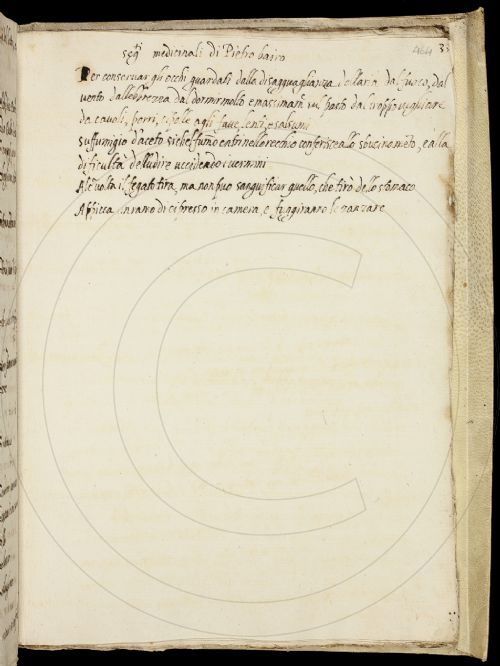 464 33
segreti medicinali di Pietro bairo
Per conservar gli occhi guardati dalla disagguaglianza dell aria dal fuoco, dal
vento dalla ebrezza dal dormir molto e massimam. pasto dal troppo vegliare
da cavoli, porri, cipole agli fave, lenti, e salsumi
suffumigio d aceto si ch el fumo entri nell orecchio conferisce allo e alla
dificulta dell udire uccidendo i vermini
volta il fegato tira, ma non puo sanguificar quello, che tiro dello stomaco
Appicca un ramo di cipresso in camera, e fuggiranno le zanzare